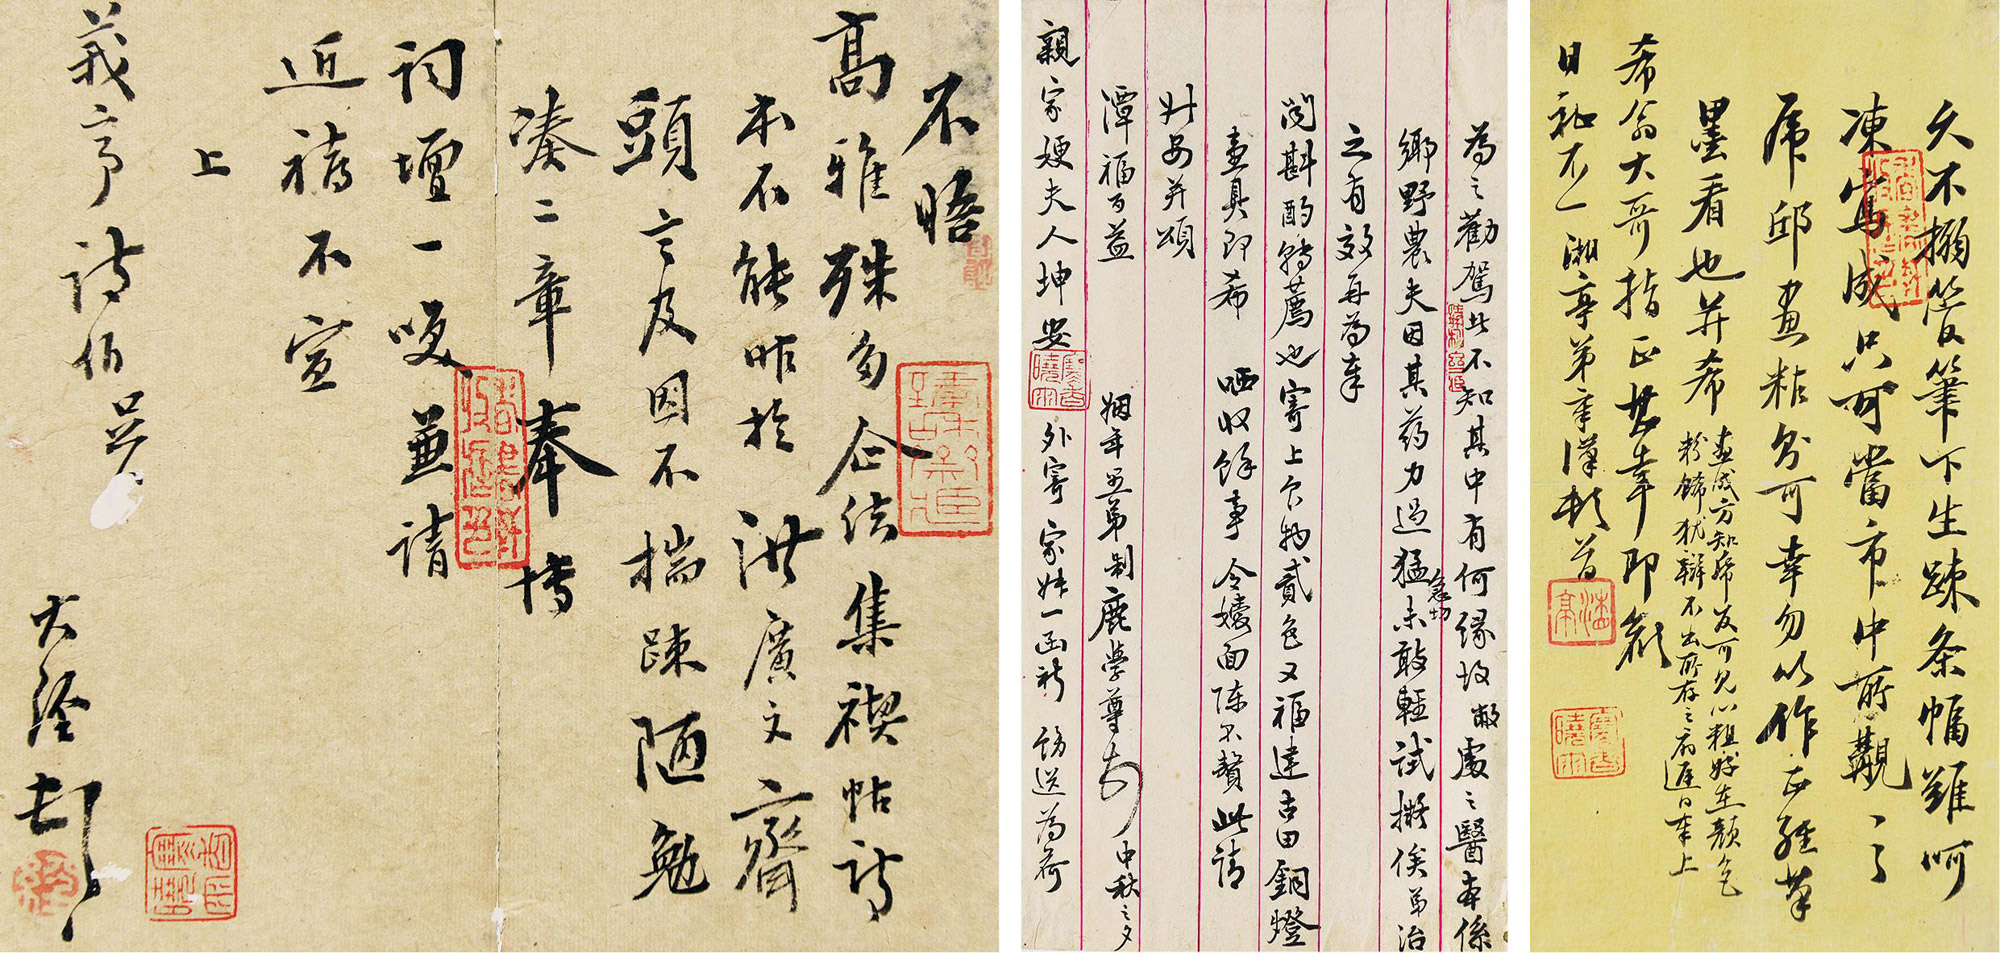 不晤
高雅殊勿企結集禊帖詩
本不能昨於洪廣文齋
頭言及因不揣疎陋勉
湊二章奉博
詞壇一哽並請
近禧不宣
上
義亭詩伯
大經頓
為之勸駕此不知其中有何緣故敝處之醫本係
鄉野農夫因其药力過猛未敢輕試擬俟弟治
急切
之有效再為奉
閱斟酌轉薦也寄上食物貳色又福建古田銅燈
壹具即希 哂收餘事令嬡面陳不贅此請
升安并頌
潭福百益 姻年愚弟制鹿學尊 中秋之夕
親家夫人坤安 外寄家妹一函祈 飭送為荷
久不搦管筆下生疎条幅難呵
凍寫成只可當市中所觀之
虎邱畫粘可幸勿以作正經筆
墨看也并希
畫成方知反可見以粗好在顏色
粉飾犹辯不出所存之遲日奉上
希翁大哥指正甚幸即頌
日祉不一 湘亭弟章漢頓首